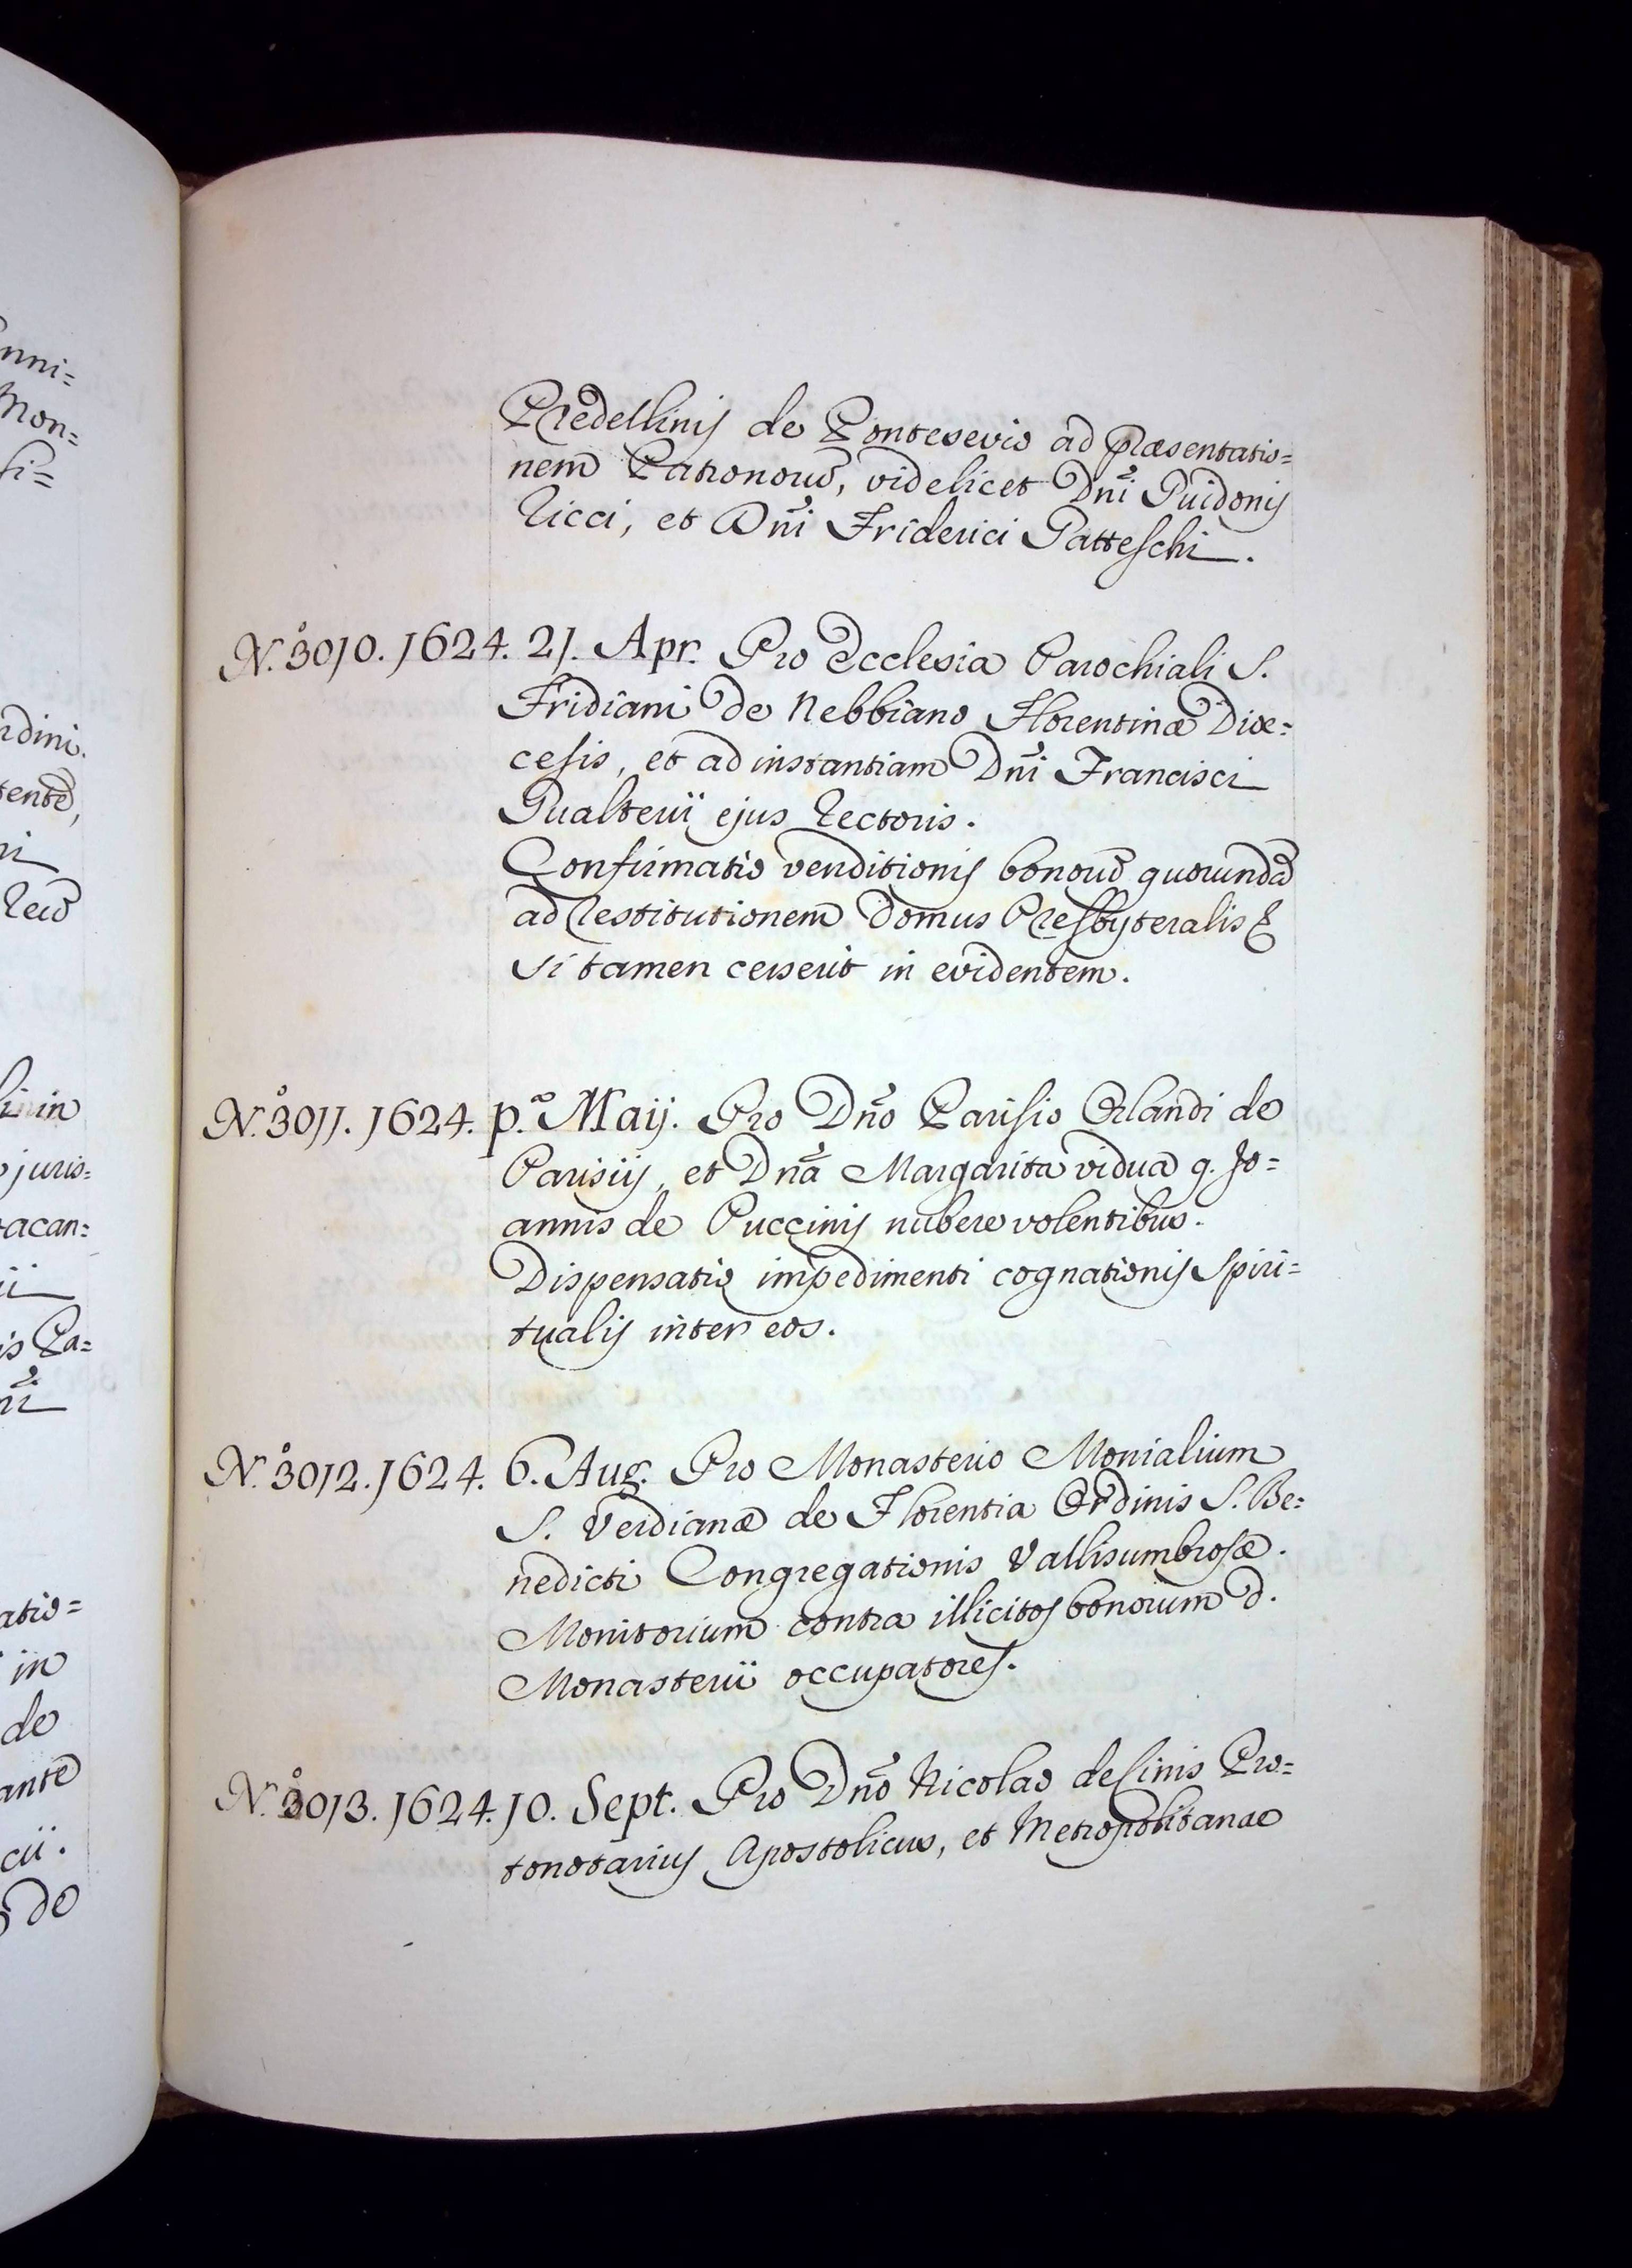 nni=
Mon=
si=
rdini.
tente,
ni
Reuō
linin
juris=
acan:
ii
is Pa=
ni
atio=
in
de
ante
cii.
de
Predellinis de Pontesevio ad præsentatio=
nem Patronorū, videlicet Dñi Guidonis
Ricci, et Dñi Friderici Gatteschi.
N.º 3010. 1624. 21. Apr. Pro Ecclesia Parochiali S.
Fridiani de Nebbiano Florentinæ Diœ=
cesis, et ad instantiam Dñi Francisci
Gualterii ejus Rectoris.
Confirmatio venditionis bonorū quorundā
ad Restitutionem Domus Presbyteralis &
si tamen cesserit in evidentem.
N.º 3011. 1624. p.ª Maij. Pro Dño Parisio Orlandi de
Parisiis, et Dña Margarita vidua q. Jo=
annis de Puccinis nubere volentibus.
Dispensatio impedimenti cognationis Spiri=
tualis inter eos.
N.º 3012. 1624. 6. Aug. Pro Monasterio Monialium
S. Verdianæ de Florentia Ordinis S. Be=
nedicti Congregationis Vallisumbrosæ.
Monitorium contra illicitos bonorum d.
Monasterii occupatores.
N.º 3013. 1624. 10. Sept. Pro Dño Nicolao de Sinis Pro=
tonotarius Apostolicus, et Metropolitanae